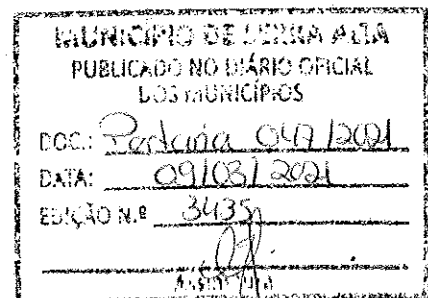 MUNICÍPIO DE SERRA ALTA
PUBLICADO NO DIÁRIO OFICIAL
DOS MUNICÍPIOS
DOC.: Portaria 047/2021
DATA: 09/03/2021
EDIÇÃO N.º 3435
Assinatura